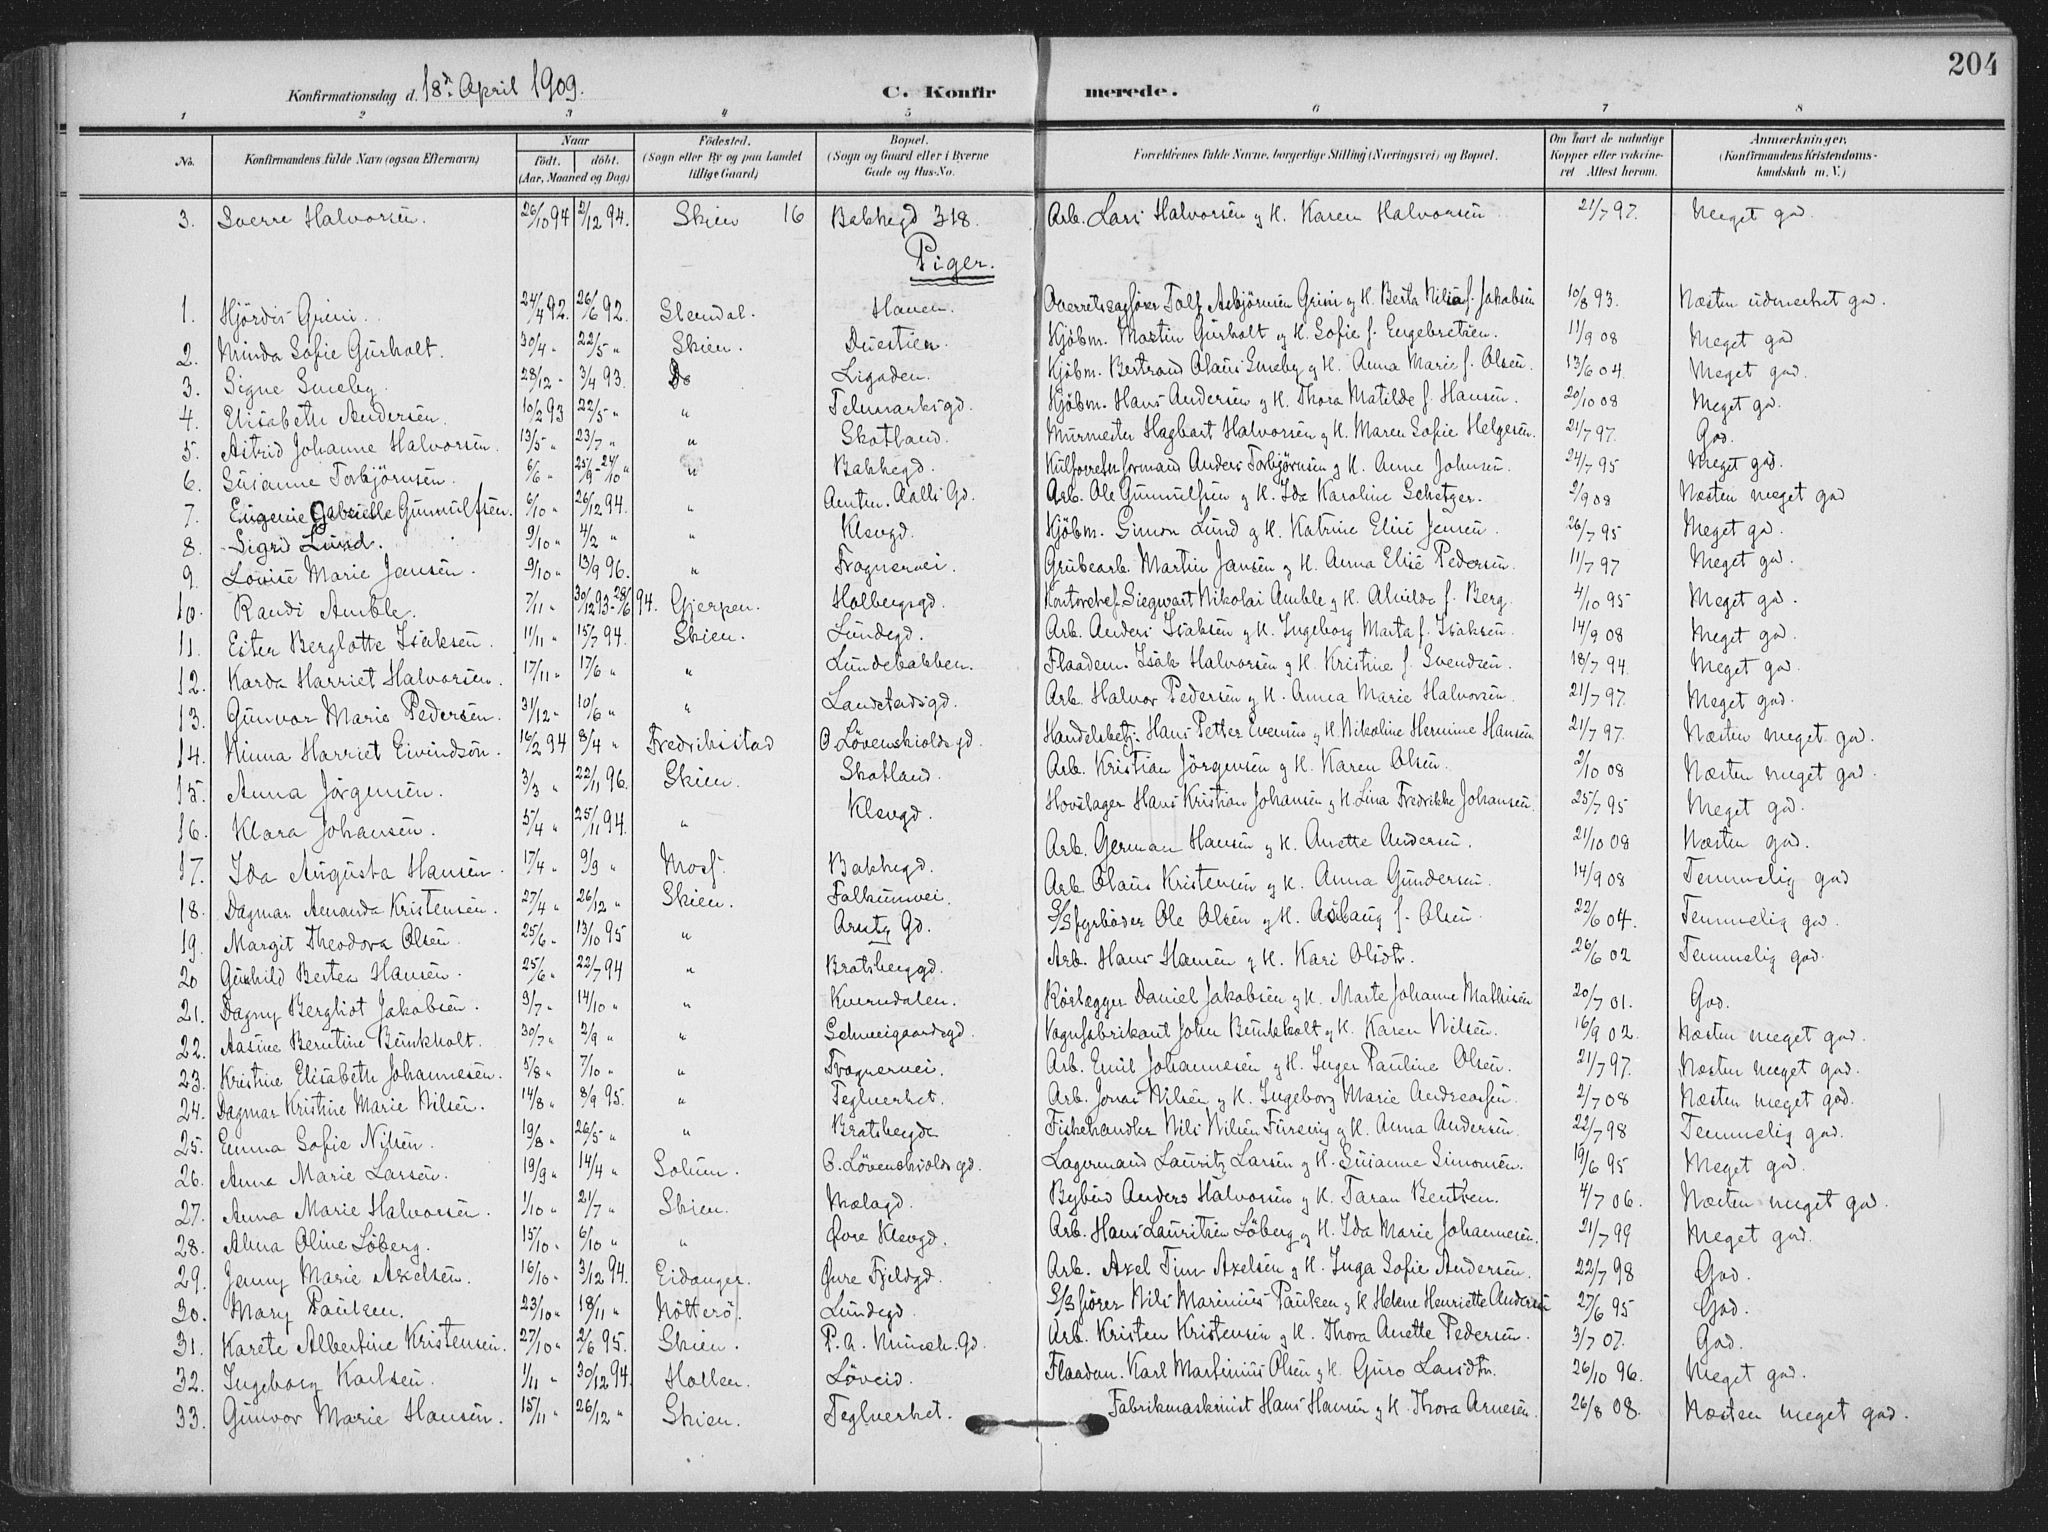 204
Konfirmationsdag d. 18d. April 1909.
C. Konfirmerede.
1 2 3 4 5 6 7 8
No. Konfirmandens fulde Navn (ogsaa Efternavn) Naar födt. döbt. (Aar, Maaned og Dag) Födested. (Sogn eller By og paa Landet tillige Gaard) Bopæl. (Sogn og Gaard eller i Byerne Gade og Hus-No. Forældrenes fulde Navne, borgerlige Stilling (Næringsvei) og Bopæl. Om havt de naturlige Kopper eller vakcineret. Attest herom. Anmærkninger. (Konfirmandens Kristendomskundskab m. V.)
3. Sverre Halvorsen. 26/10 94 2/12 94. Skien 16 Bakkegd 318. Arb. Lars Halvorsen og H. Karen Halvorsen 21/7 97. Meget god.
Piger.
1. Hjördis Grini. 24/4 92. 26/6 92. Haven. Overretssagförer Tolf Asbjörnsen Grini og H. Berta Nilia f. Jakobsen 10/8 93. Næsten udmerket god.
2. Minda Sofie Gurholt. 30/4 " 22/5 " Skien. Duestien Kjöbm. Martin Gurholt og H. Sofie f. Engebretsen. 11/9 08 Meget god
3. Signe Smeby. 28/12 " 3/4 93. Do Ligaden. Kjöbm. Bertrand Olaus Smeby og H. Anna Marie f. Olsen. 13/6 04. Meget god.
4. Elisabeth Andersen. 10/2 93 22/5 " " Telemarksgd. Kjöbm. Hans Andersen og H. Thora Matilde f. Hansen. 20/10 08 Meget god.
5. Astrid Johanne Halvorsen. 13/5 " 23/7 " " Skotland. Murmester Hagbart Halvorsen og H. Maren Sofie Helgesen. 21/7 97. God.
6. Susanne Torbjörnsen. 6/6 " 25/9 - 24/10 " " Bakkegd. formand Anders Torbjörnsen og H. Anne Johnsen. 24/7 95 Meget god.
7. Eugenie Gabrielle Gunnulfsen. 6/10 " 26/12 94. " Amtm. Aalls Gd. Arb. Ole Gunnulfsen og H. Ida Karoline Schetger. 2/9 08 Næsten meget god
8. Sigrid Lund. 9/10 " 4/2 " " Klevgd. Kjöbm. Simon Lund og H. Katrine Elise Jensen. 26/7 95 Meget god.
9. Lovise Marie Jansen. 9/10 " 13/9 96. " Frognervei. Grubearb. Martin Jansen og H. Anna Elise Pedersen. 11/7 97 Meget god.
10. Randi Amble. 7/11 " 30/12 93-28/6 94. Gjerpen. Holbergsgd. Kontorchef Siegwart Nikolai Amble og H. Alvilde f. Berg. 4/10 95 Meget god.
11. Ester Berglotte Isaksen. 11/11 " 15/7 94. Skien. Lundegd. Arb. Anders Isaksen og H. Ingeborg Marta f. Isaksen. 14/9 08 Meget god.
12. Karda Harriet Halvorsen. 17/11 " 17/6 " " Lundebakken. Flaadem. Isak Halvorsen og H. Kristine f. Svendsen. 18/7 94. Meget god.
13. Gunvor Marie Pedersen. 31/12 " 10/6 " " Landstadsgd. Arb. Halvor Pedersen og H. Anna Marie Halvorsen. 21/7 97. Meget god.
14. Minna Harriet Eivindson. 16/2 94 8/4 " Fredrikstad O. Lövenskioldsgd. Handelsbetj. Hans Petter Evensen og H. Nikoline Hermine Hansen 21/7 97. Næsten meget god.
15. Anna Jörgensen. 3/3 " 22/11 96. Skien. Skotland. Arb. Kristian Jörgensen og H. Karen Olsen. 2/10 08 Næsten meget god.
16. Klara Johansen. 5/4 " 25/11 94. " Klevgd. Hovslager Hans Kristian Johansen og H. Lina Fredrikke Johansen. 25/7 95 Meget god.
17. Ida Augusta Hansen. 17/4 " 9/9 " Moss. Bakkegd. Arb. German Hansen og H. Anette Andersen. 21/10 08 Næsten god.
18. Dagmar Amanda Kristensen. 27/4 " 26/12 " Skien. Falkumvei. Arb. Olaus Kristensen og H. Anna Gundersen. 14/9 08 Temmelig god
19. Margit Theodora Olsen. 25/6 " 13/10 95 " Arnty Gd. S/S fyrböder Ole Olsen og H. Aslaug f. Olsen. 22/6 04. Temmelig god.
20 Gunhild Bertea Hansen. 25/6 " 22/7 94 " Bratsberggd. Arb. Hans Hansen og H. Kari Olsdtr. 26/6 02 Temmelig god.
21. Dagny Bergliot Jakobsen. 9/7 " 14/10 " " Kverndalen. Rörlægger Daniel Jakobsen og H. Marte Johanne Mathisen 20/7 01. God.
22. Aasine Berntine Bunkholt. 30/7 " 2/9 " " Schweigaardsgd. Vognfabrikant John Bunkholt og H. Karen Nilsen. 16/9 02. Næsten meget god.
23. Kristine Elisabeth Johannesen. 5/8 " 7/10 " " Frognervei. Arb. Emil Johannesen og H. Inger Pauline Olsen. 21/7 97. Næsten meget god.
24. Dagmar Kristine Marie Nilsen. 14/8 " 8/9 95. " Teglverket. Arb. Jonas Nilsen og H. Ingeborg Marie Andreassen. 2/7 08 Næsten meget god.
25. Emma Sofie Nilsen. 19/8 " 26/5 " " Bratsberggd. Fiskehandler Nils Nilsen Fureng og H. Anna Andersen. 22/7 98 Temmelig god.
26. Anna Marie Larsen. 19/9 " 14/4 " Solum. O. Lövenskioldsgd. Lagermand Lauritz Larsen og H. Susanne Simonsen. 19/6 95 Meget god.
27. Anna Marie Halvorsen. 1/10 " 21/7 " Skien. Mælagd. Bybud Anders Halvorsen og H. Taran Bentsen. 4/7 06. Næsten meget god.
28. Alma Oline Löberg. 15/10 " 6/10 " " Övre Klevgd. Arb. Hans Lauritsen Löberg og H. Ida Marie Johannesen. 21/7 99 Meget god.
29. Jenny Marie Axelsen. 16/10 " 3/12 94. Eidanger. Övre Fjeldgd. Arb. Axel Tim Axelsen og H. Inga Sofie Andersen. 22/7 98 God.
30. Mary Paulsen. 23/10 " 18/11 " Nötterö. Lundegd. S/S förer Nils Marinius Paulsen og H Helene Henriette Andersen 27/6 95 God.
31. Karete Albertine Kristensen. 27/10 " 2/6 95. Skien. P. A. Munch. Gd. Arb. Kristen Kristensen og H. Thora Anette Pedersen. 3/7 07. God.
32. Ingeborg Karlsen. 1/11 " 30/12 94. Hollen. Löveid. Flaadem. Karl Martinius Olsen og H. Guro Larsdtr. 26/10 96. Meget god.
33. Gunvor Marie Hansen. 15/11 " 26/12 " Skien. Teglverket. Fabrikmaskinist Hans Hansen og H. Thora Arnesen. 26/8 08. Næsten meget god.